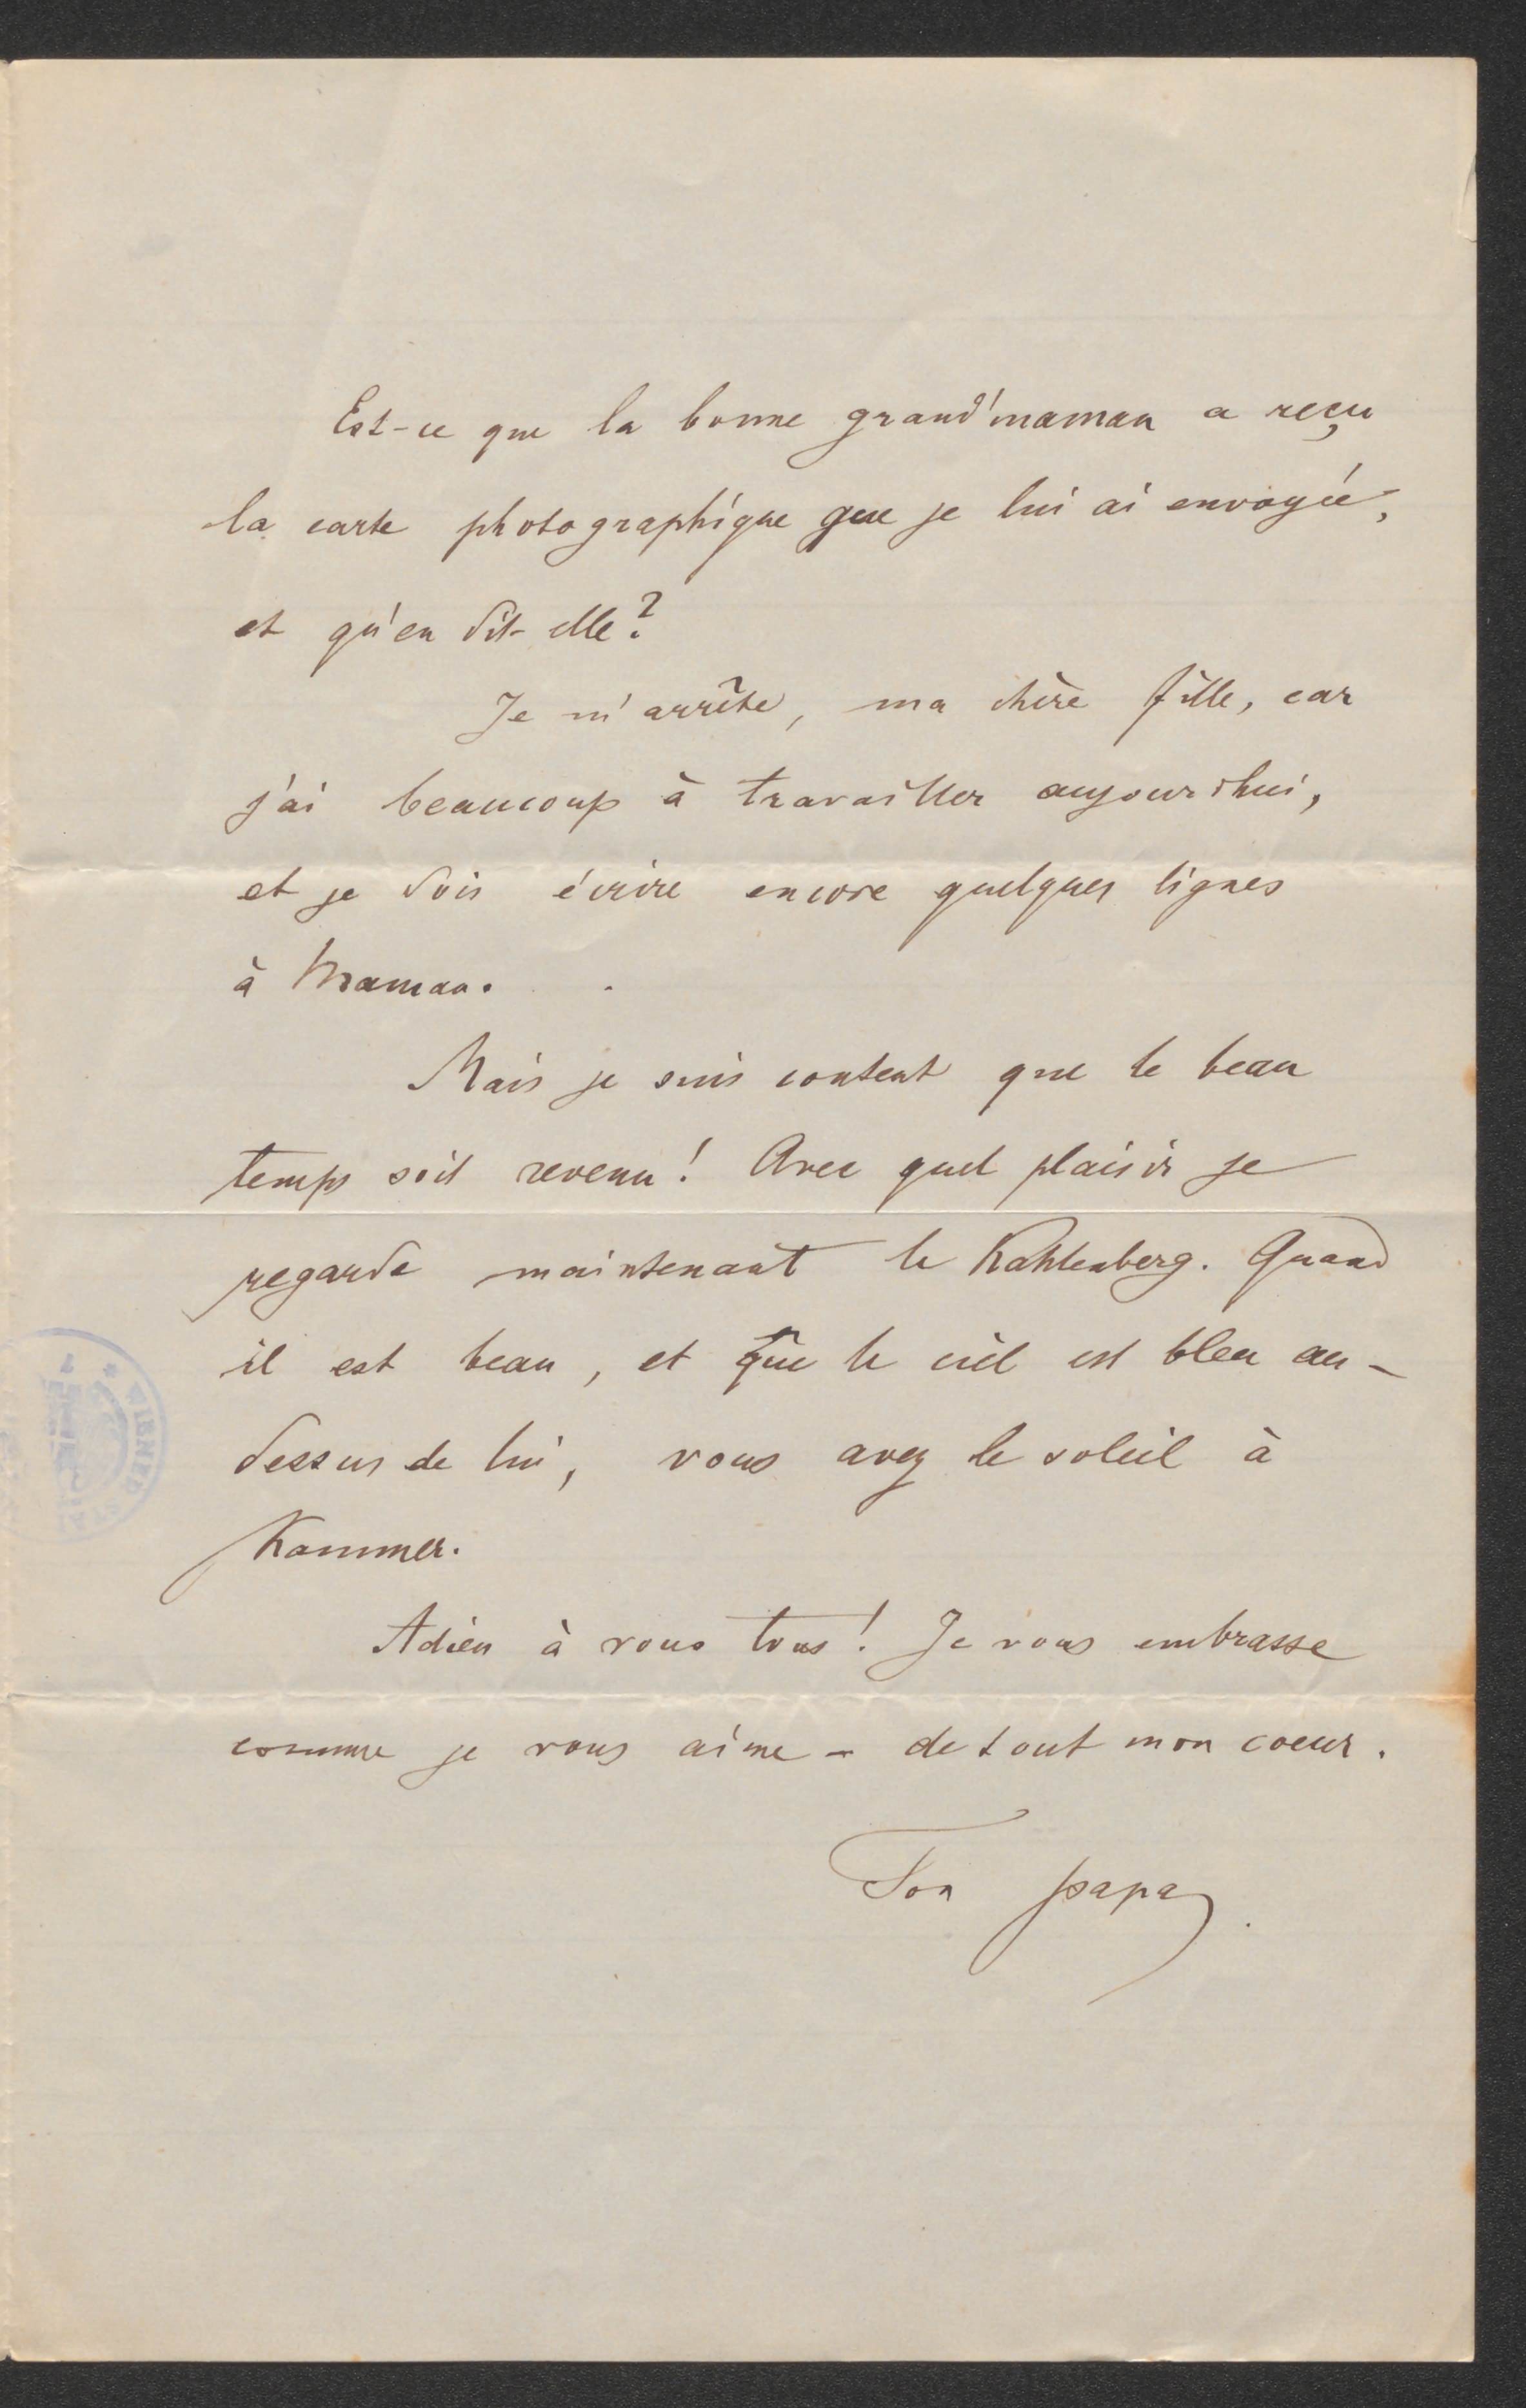 Est-ce que la bonne grand'maman a reçu
la carte photographique que je lui ai envoyée,
et qu'en dit-elle?
Je m'arrête, ma chère fille, car
j'ai beaucoup à travailler aujourdhui,
et je dois écrire encore quelques lignes
à Maman.
Mais je suis content que le beau
temps soit revenu! Avec quel plaisir je
regarde maintenant le Kahlenberg. Quand
il est beau, et que le ciel est bleu au-
dessus de lui, vous avez le soleil à
Kammer.
Adieu à vous tous! Je vous embrasse
comme je vous aime - de tout mon coeur.
Ton papa.
WIENER